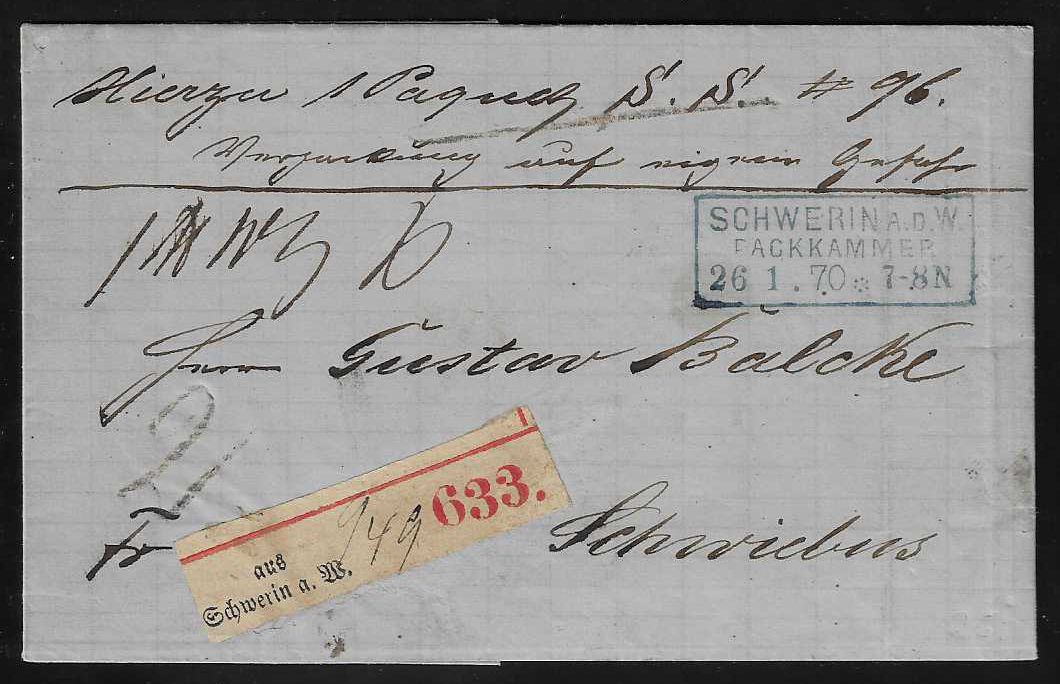 Hierzu 1 Paquet S. S. # 96.
Verpackung auf eigene Gefahr
SCHWERIN A.D.W.
PACKKAMMER
26 1. 70 * 7-8N
Herrn Gustav Bälcke
2
1
633.
949
aus
Schwerin a. W.
fr
Schwiebus